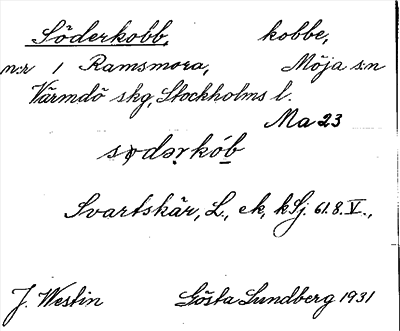 Söderkobb, kobbe,
n:r 1 Ramsmora, Möja sn
Värmdö skg, Stockholms l.
Ma 23
Svartskär, L., ek, kSj. 61.8.V.,
J. Westin Gösta Lundberg 1931